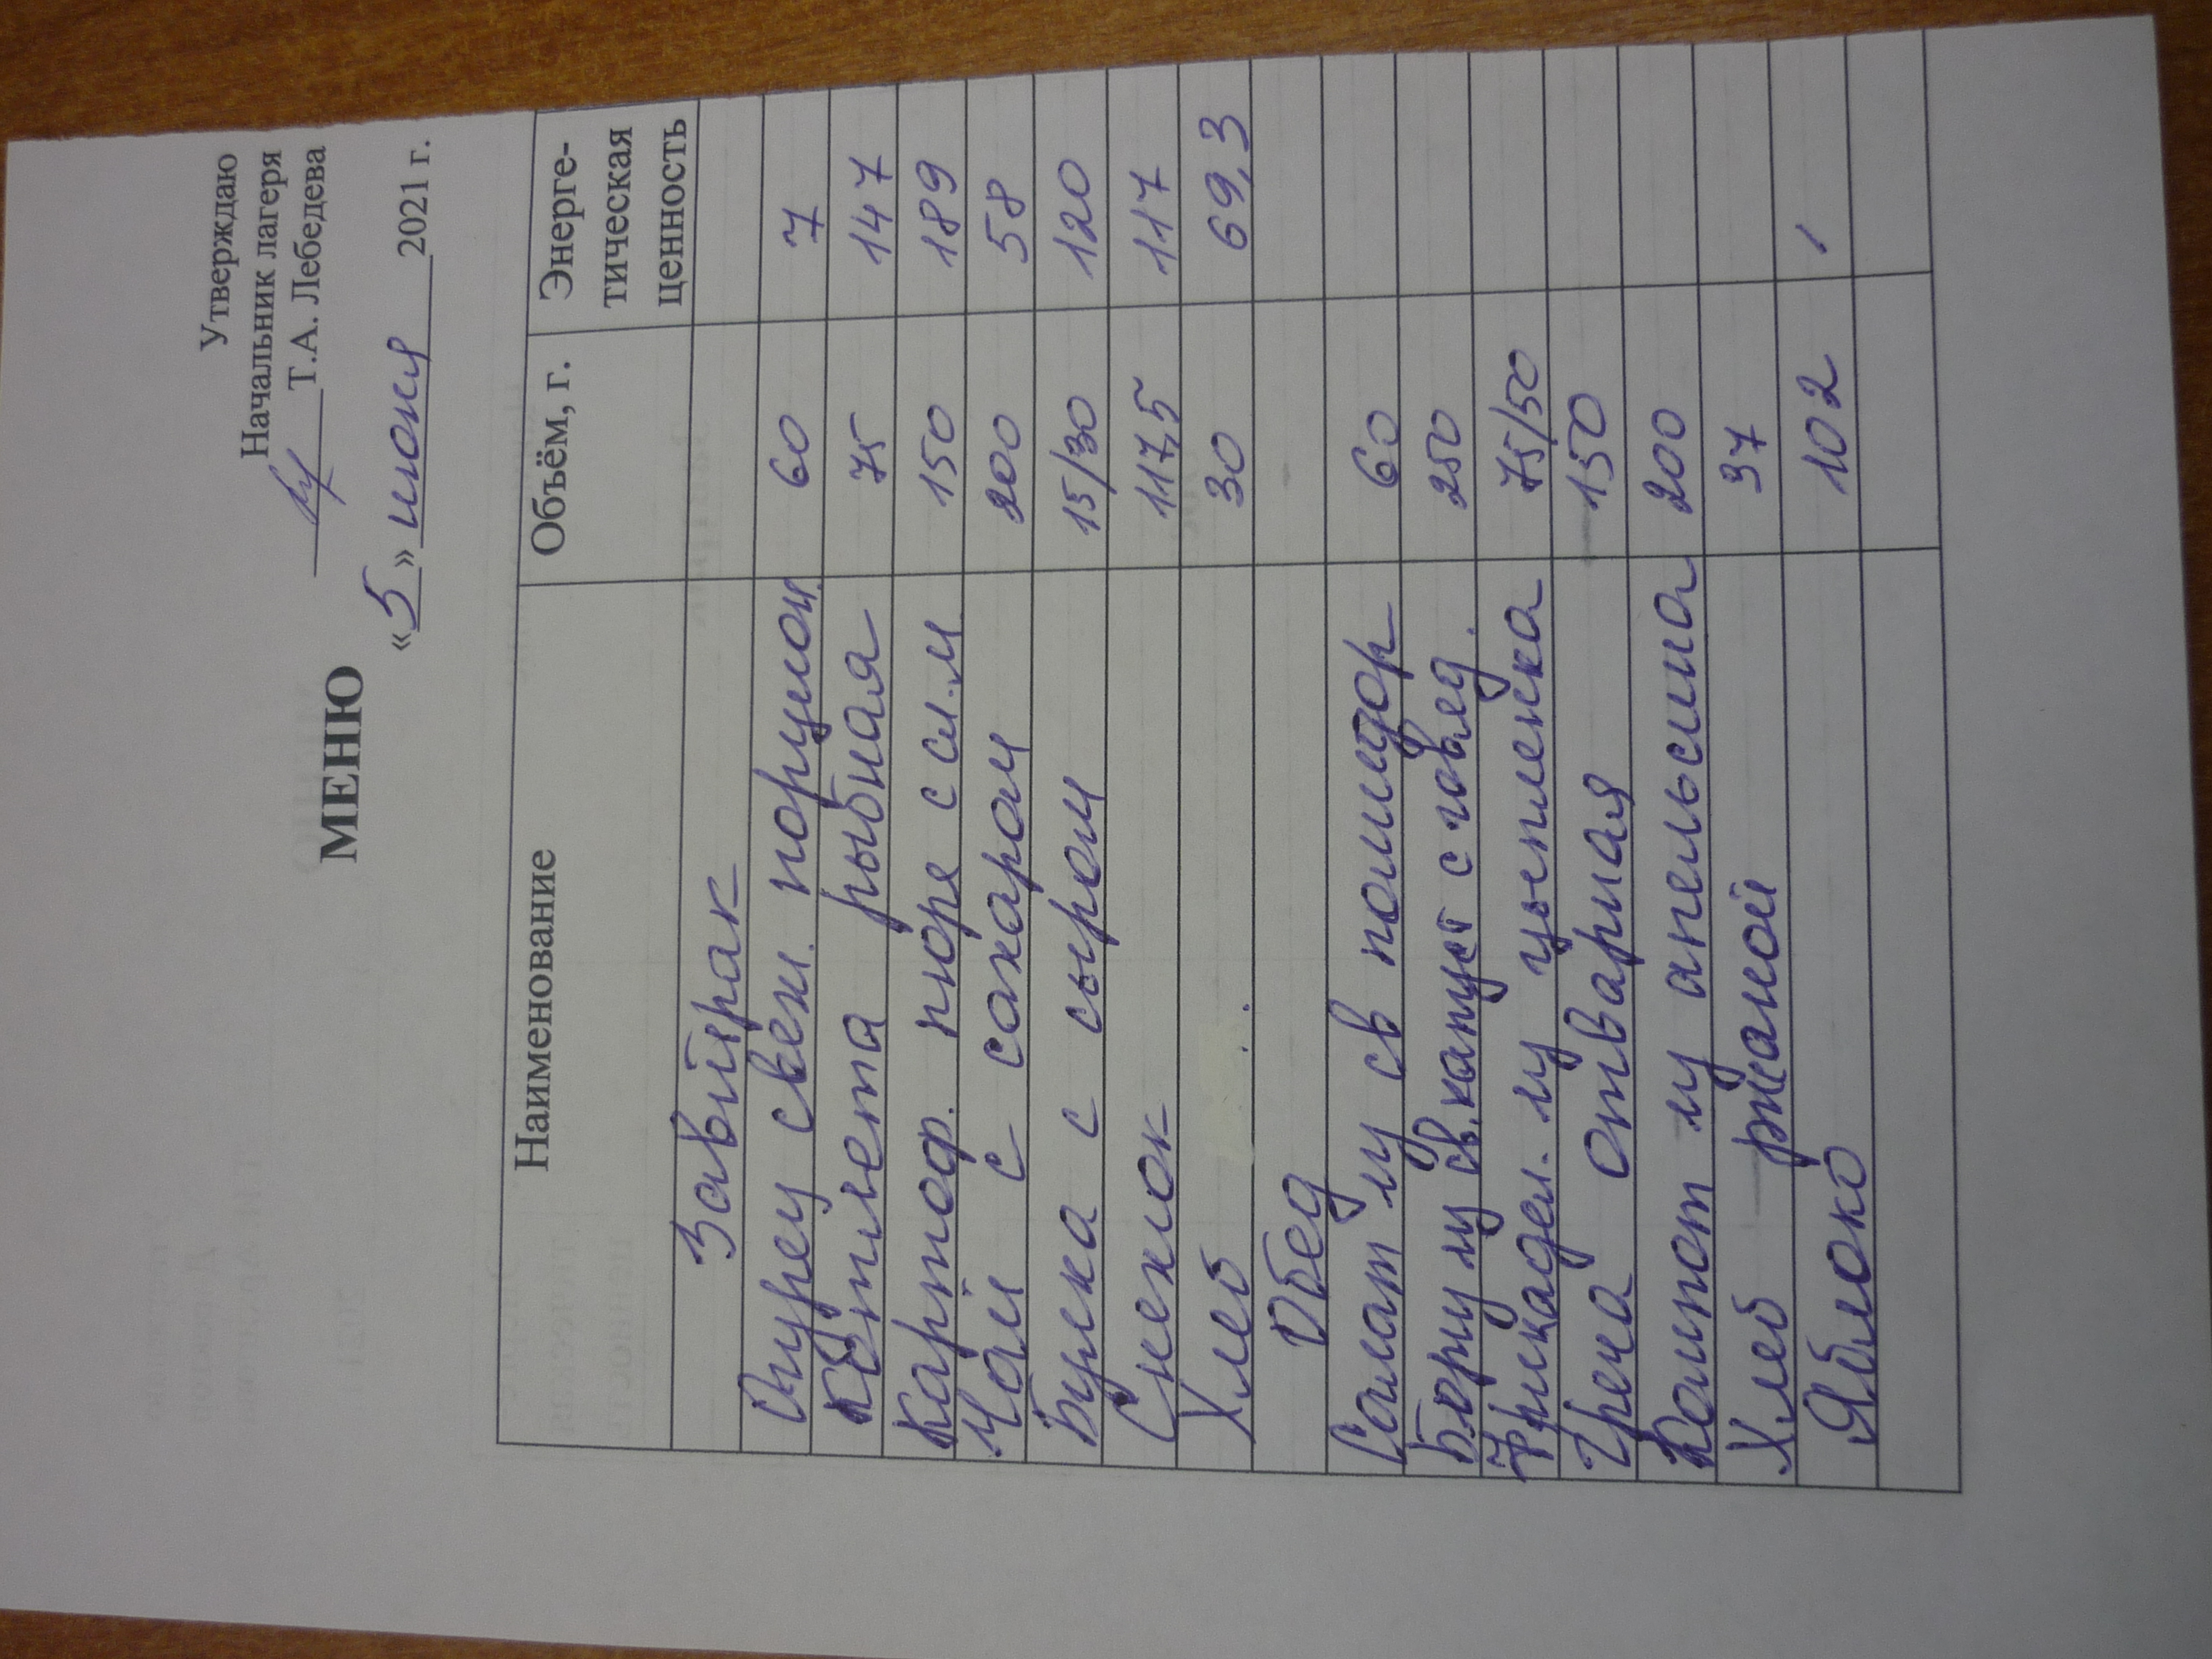 Утверждаю
Начальник лагеря
Т.А. Лебедева
МЕНЮ
«5» июня 2021 г.
Наименование Объём, г. Энерге-
тическая
ценность
Завтрак
Огурец свеж. порцион. 60 7
Котлета рыбная 75 147
Картоф. пюре с сл.м 150 189
Чай с сахаром 200 58
Булка с сыром 15/30 120
Снежок 117,5 117
Хлеб 30 69,3
Обед
Салат из св помидор 60
Борщ из св. капуст с говяд. 250
Фрикадел. из цыпленка 75/50
Греча отварная 150
Компот из апельсина 200
Хлеб ржаной 37
Яблоко 102